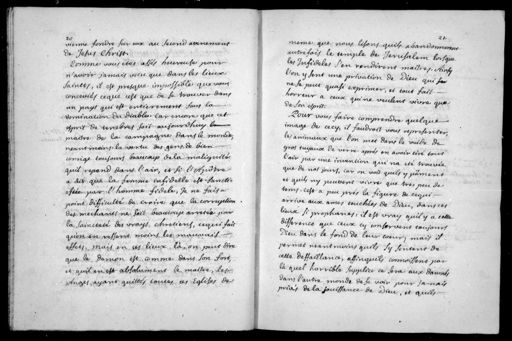 20
vienne fondre sur eux au second avenement
de Jesus Christ.
Comme vous êtes assés heureuse pour
n'avoir jamais vécu que dans des lieux
saints, il est presque impossible que vous
conceviés ceque c'est que de se trouver dans
un pays qui est entierement sous la
domination du diable. car encore que cet
esprit de tenebres soit aujourdhuy le
maitre de la campagne dans le monde,
neantmoins la vertu des gens de bien
corrige toujours beaucoup de la malignité
qu'il repand dans l'air, et si l'Apôtre
a dit que la femme infidelle est sanctifiée
par l'homme fidele, je ne fais
point difficulté de croire que la corruption
des mechants ne soit beaucoup arretée par
la sainteté des vrays chrétiens, cequi fait
qu'on en ressent moins les mauvais
effets, mais en ces lieux là, on peut dire
que le demon est comme dans son fort,
et qu'il en est absolument le maitre, les
anges, ayant quittés toutes ces Eglises de
21
meme que nous lisons qu'ils abandonnerent
autrefois le temple de Jerusalem lorsque
les Infideles s'en rendirent maitres. Aussy
l'on y sent une privation de Dieu qui
ne se peut quasi exprimer, et tout fait
horreur a ceux qui ne veulent vivre que
de son esprit.
Pour vous faire comprendre quelque
image de cecy, il faudroit vous representer
les animaux que l'on met dans le vuide
qui tâchent de vivre aprés en avoir eté tout
l'air par une invention qui n'a eté trouvée
que de nos jours, car on voit qu'ils y pâment
et qu'ils n'y peuvent vivre que tres peu de
tems. c'est a peu prés la figure de cequi
arrive aux ames touchées de Dieu, dans ces
lieux si prophanes: il est vray qu'il y a cette
difference que ceux cy conservent toujours
Dieu dans le fond de leur coeur; mais il
permet neantmoins qu'ils s'y sentent de
cette deffaillance, affinqu'ils connoissent par
là quel horrible supplice ce sera aux damnés
dans l'autre monde de se voir pour jamais
privés de la jouissance de Dieu, et qu'ils